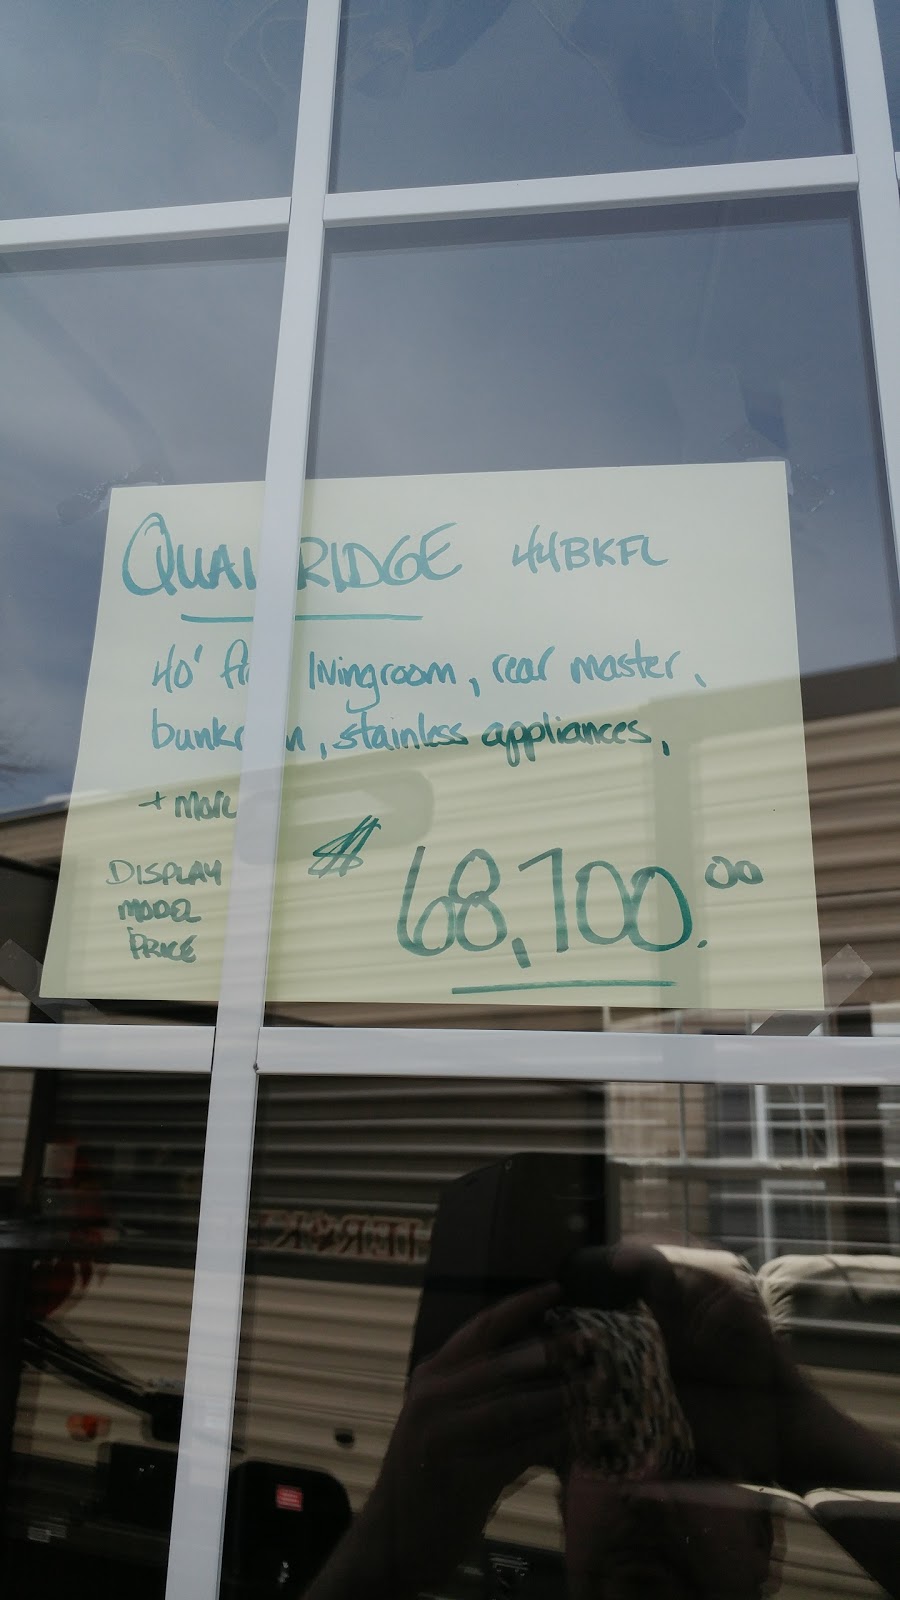 QUAIL RIDGE 44BKFL
40' front livingroom, rear master,
bunkroom, stainless appliances,
+ more
DISPLAY
MODEL
PRICE
$ 68,100.00